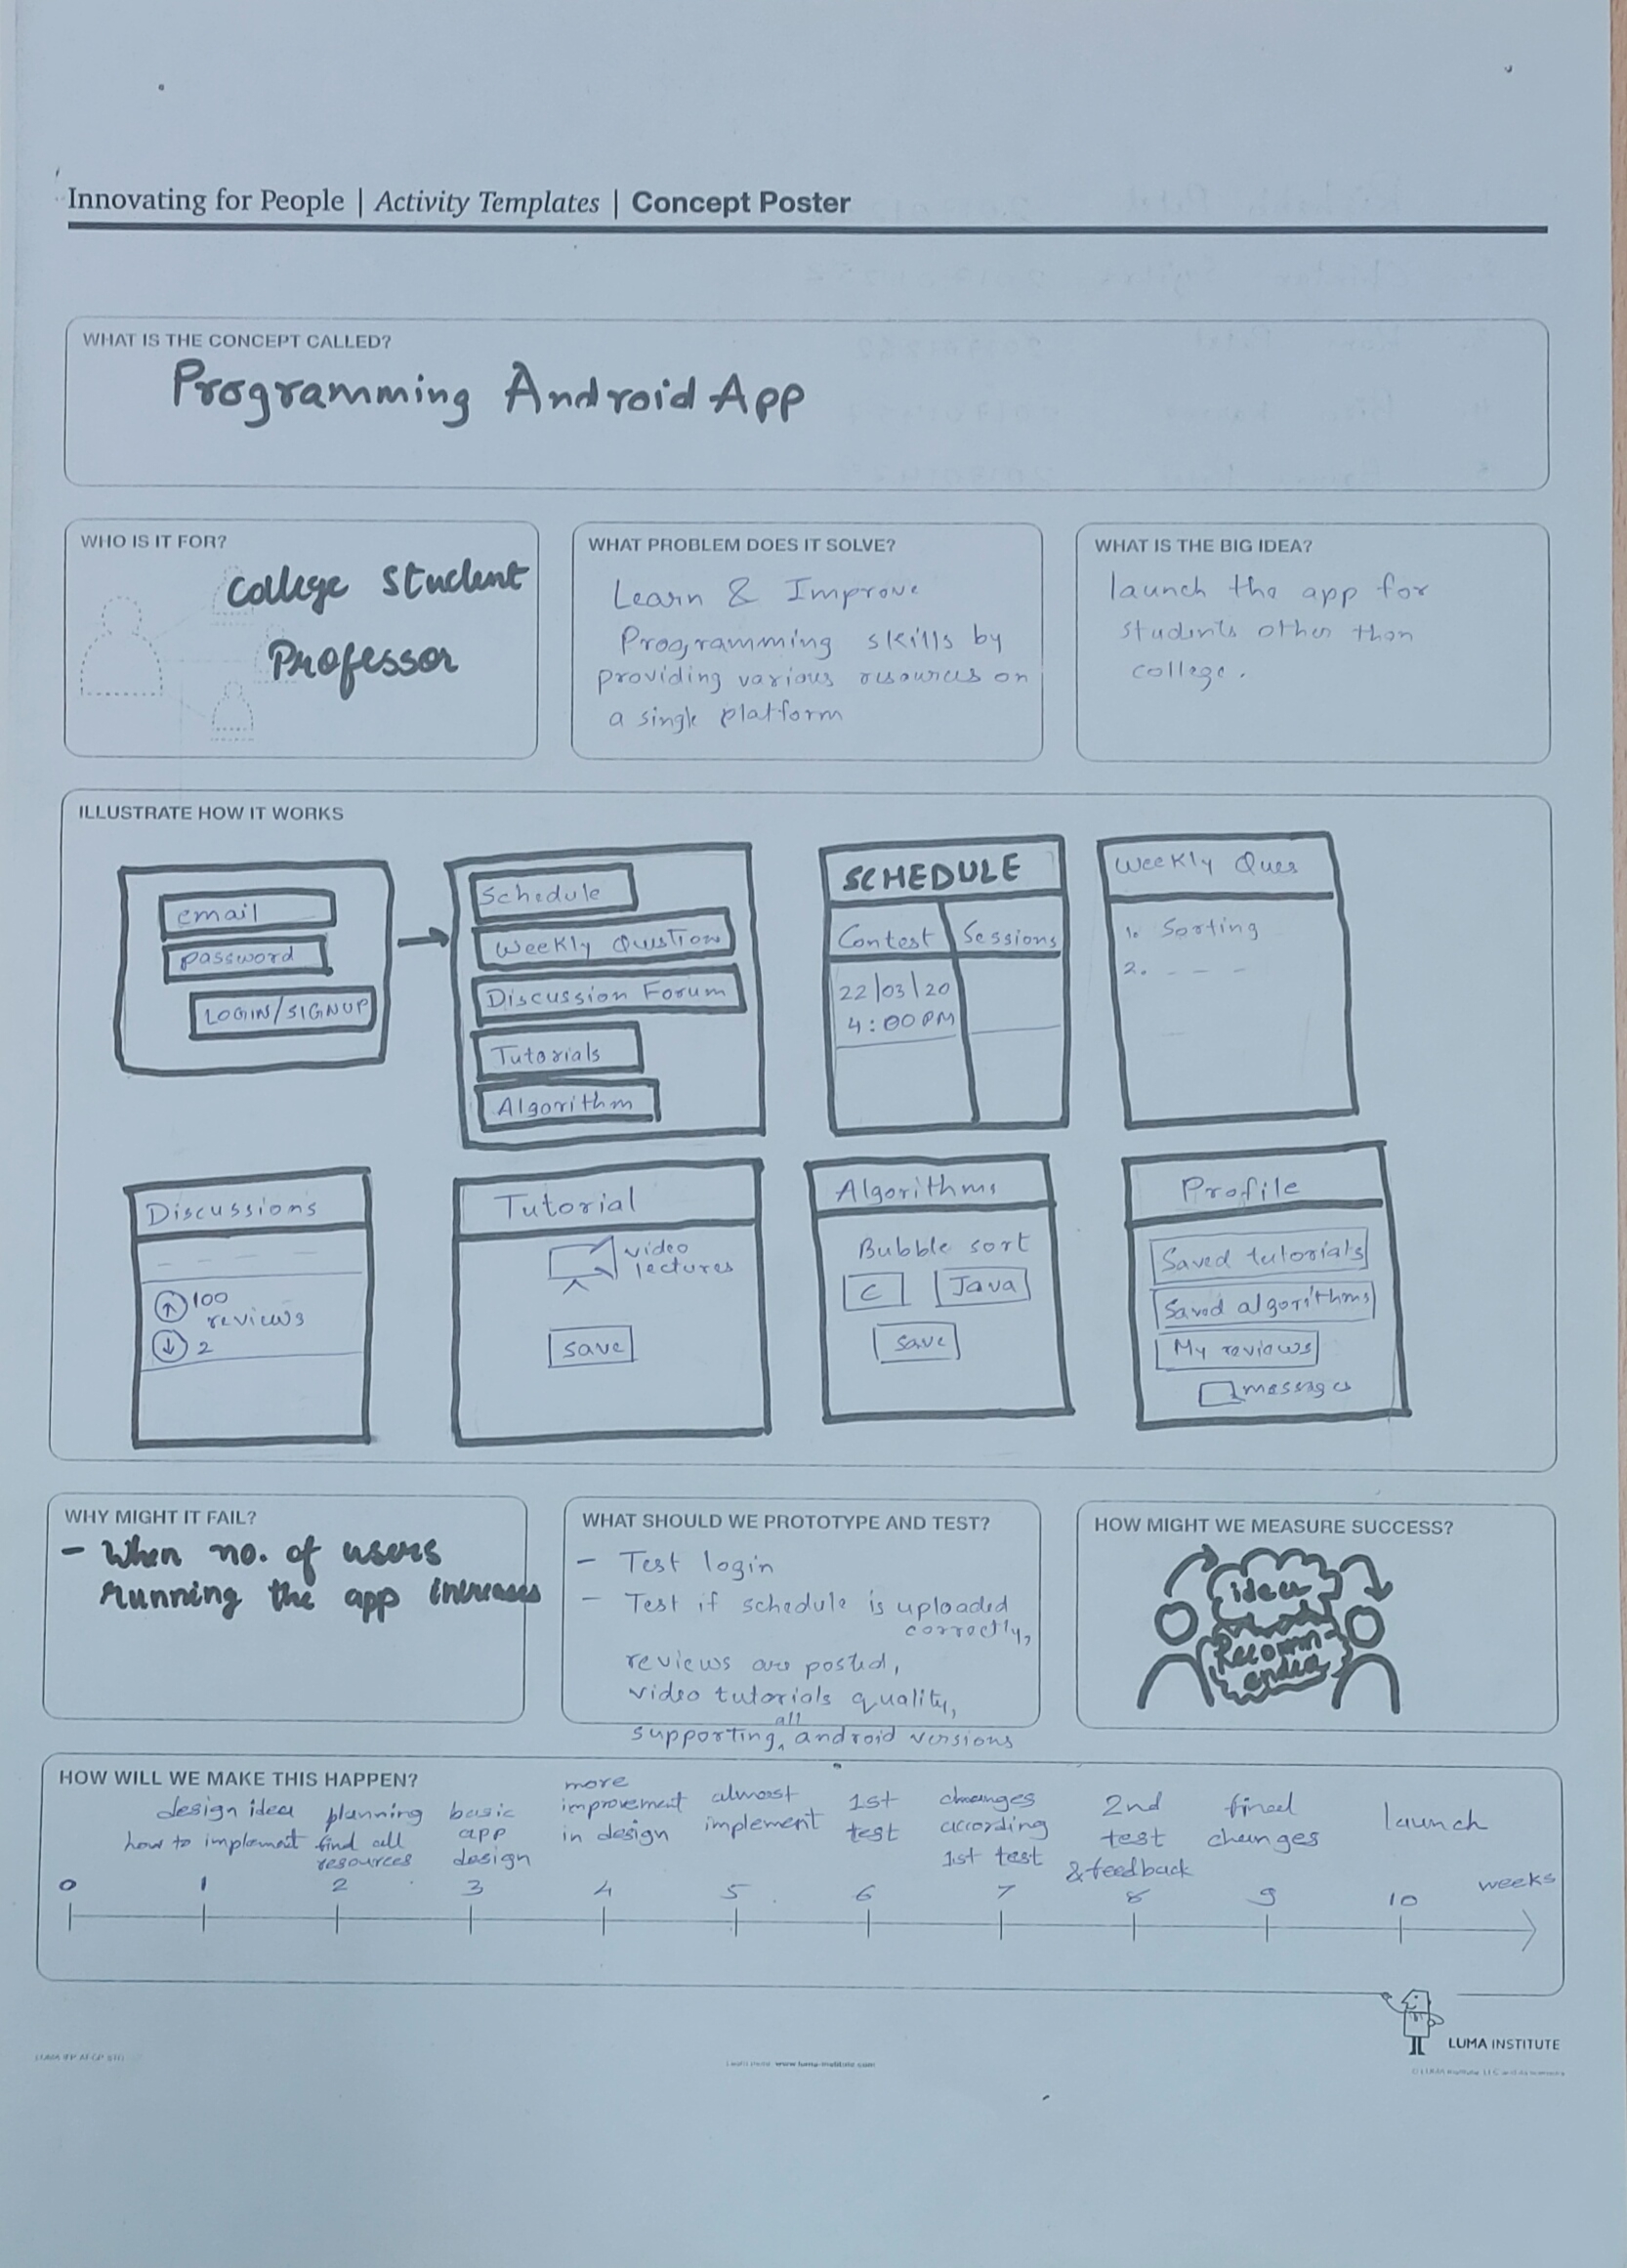 Innovating for People | Activity Templates | Concept Poster
WHAT IS THE CONCEPT CALLED?
Programming Android App
WHO IS IT FOR?
College Student
Professor
WHAT PROBLEM DOES IT SOLVE?
Learn & Improve
Programming skills by
providing various resources on
a single platform
WHAT IS THE BIG IDEA?
launch the app for
students other than
college.
ILLUSTRATE HOW IT WORKS
email
password
LOGIN/SIGNUP
Schedule
Weekly Question
Discussion Forum
Tutorials
Algorithm
SCHEDULE
Contest Sessions
22/03/20
4:00PM
Weekly Ques
1. Sorting
2. - - -
Discussions
100
reviews
2
Tutorial
video
lectures
save
Algorithms
Bubble sort
C Java
save
Profile
Saved tutorials
Saved algorithms
My reviews
messages
WHY MIGHT IT FAIL?
- When no. of users
running the app increases
WHAT SHOULD WE PROTOTYPE AND TEST?
- Test login
- Test if schedule is uploaded
correctly,
reviews are posted,
video tutorials quality,
all
supporting, android versions
HOW MIGHT WE MEASURE SUCCESS?
idea
Recomm-
ended
HOW WILL WE MAKE THIS HAPPEN?
design idea
how to implement
planning
find all
resources
basic
app
design
more
improvement
in design
almost
implement
1st
test
changes
according
1st test
2nd
test
& feedback
final
changes
launch
0 1 2 3 4 5 6 7 8 9 10 weeks
LUMA INSTITUTE
www.luma-institute.com